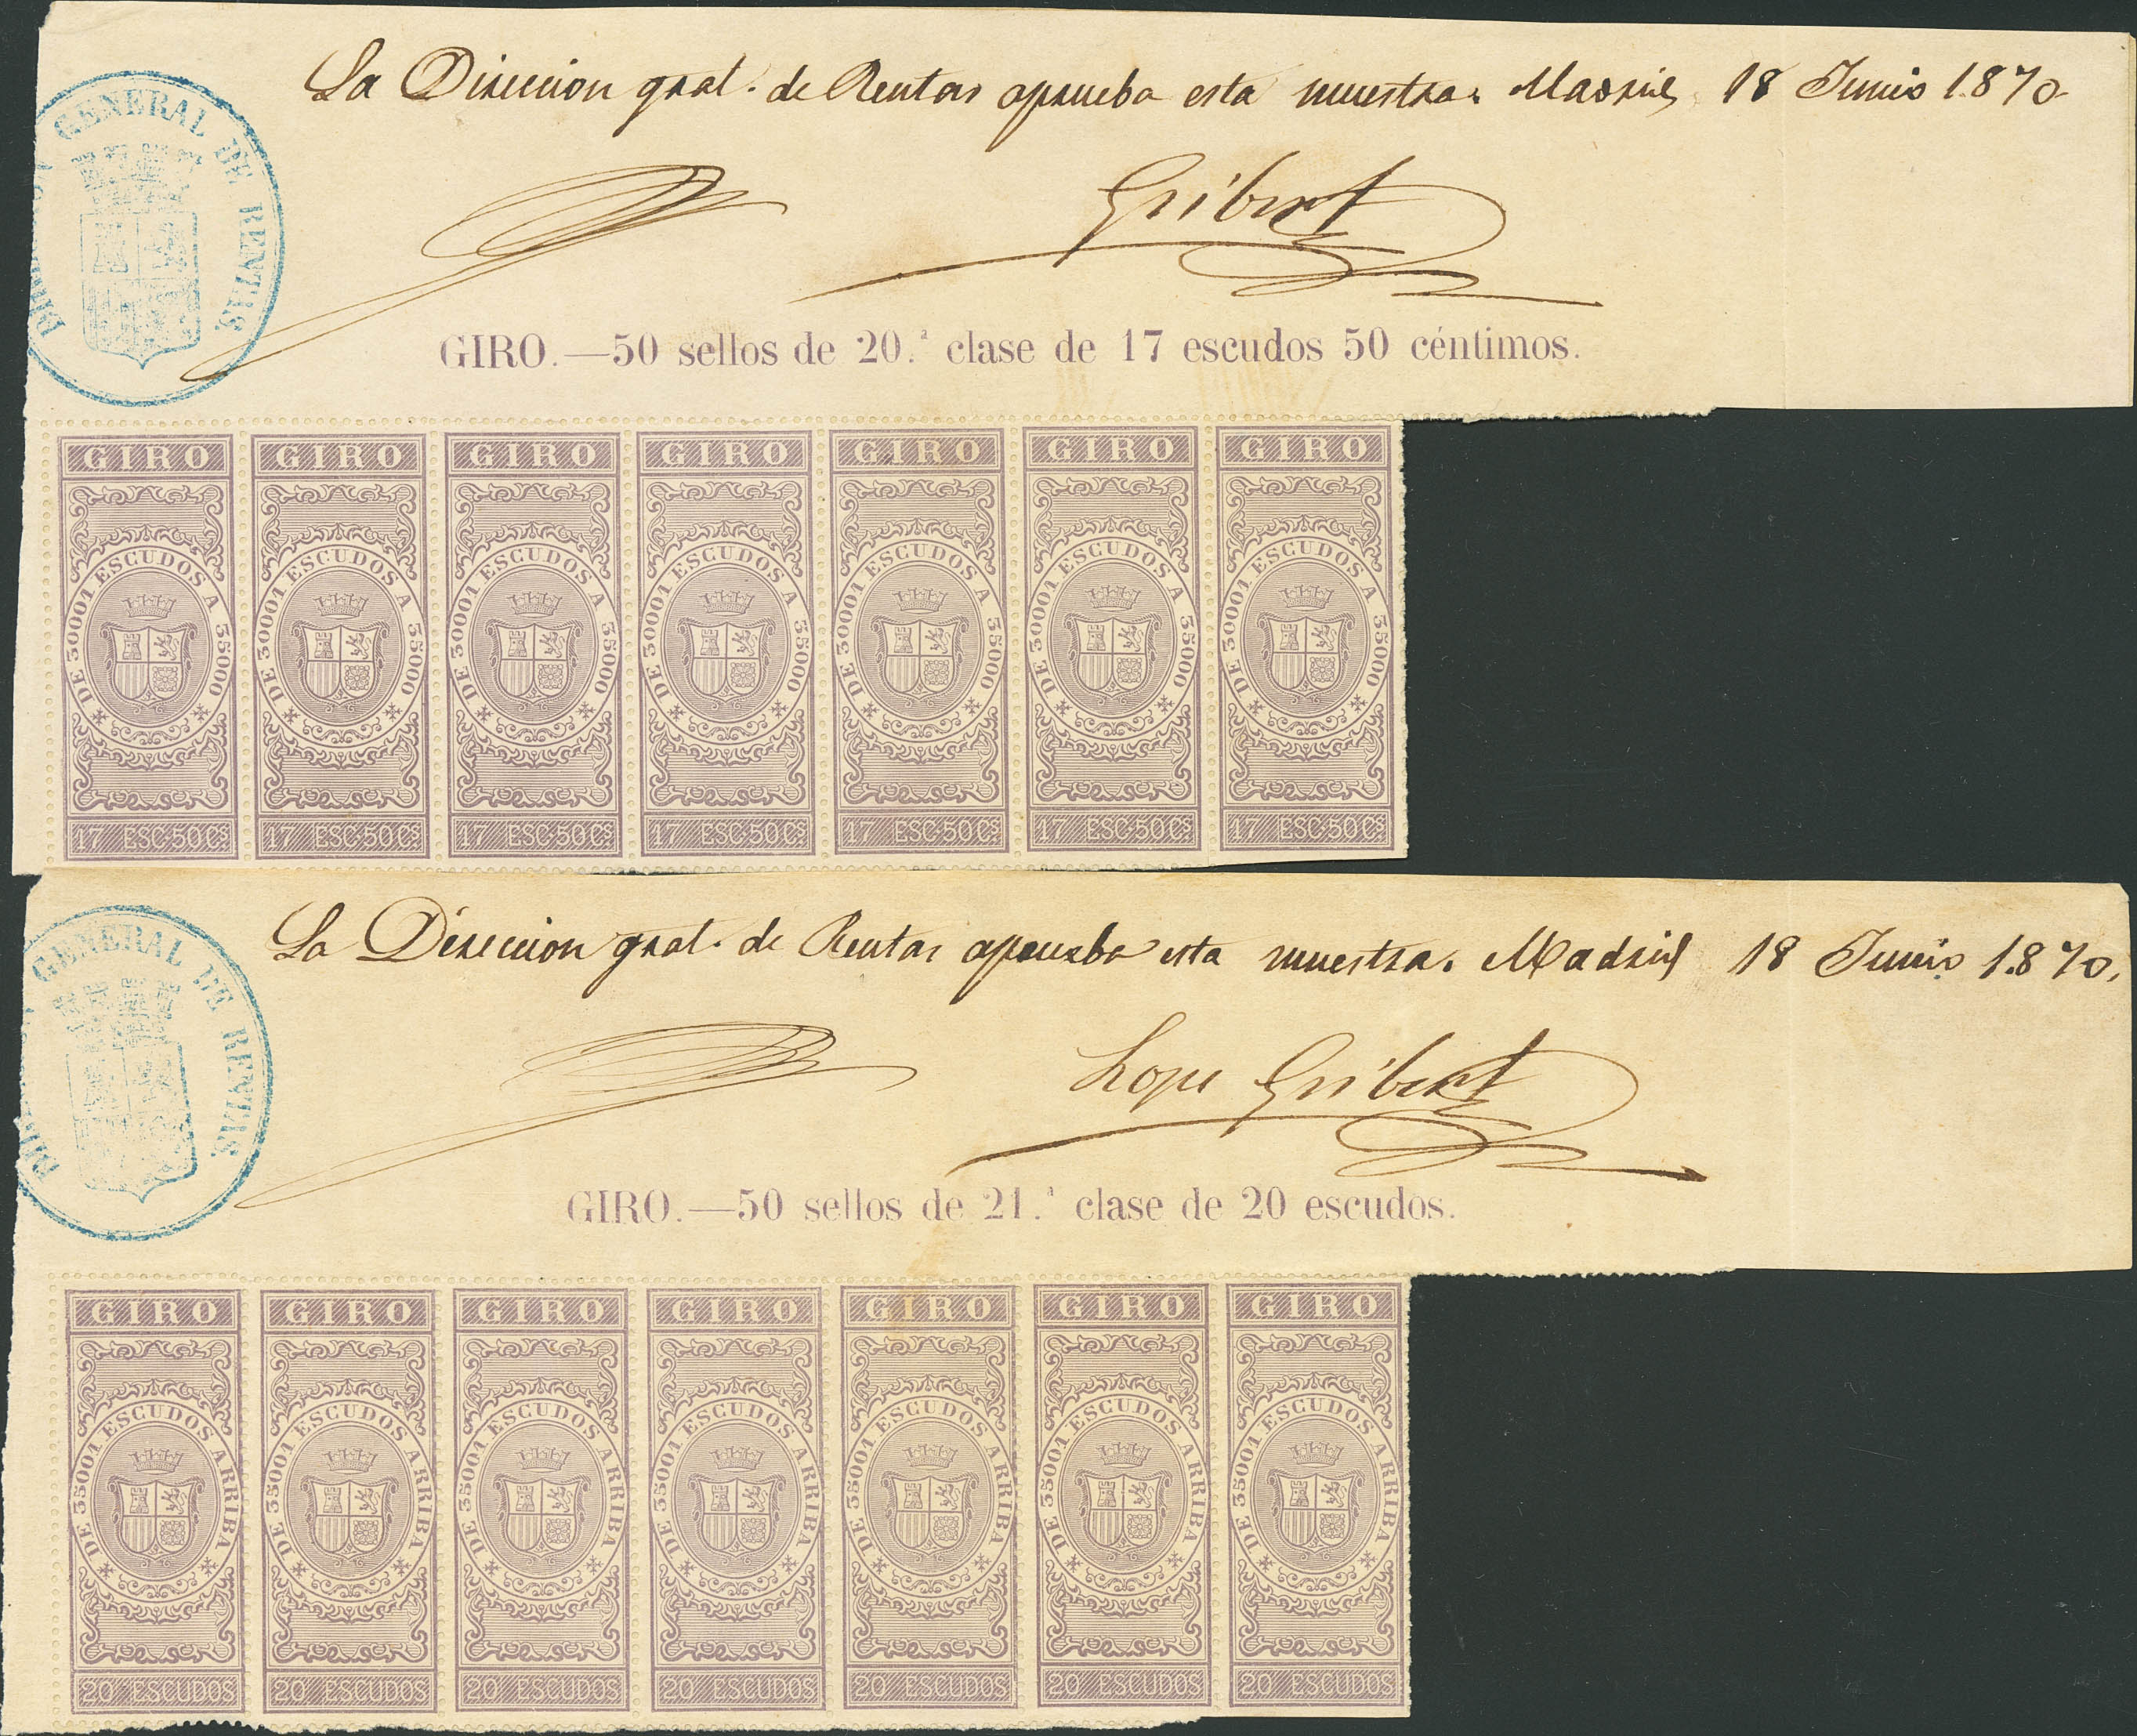 La Direccion gral. de Rentas aprueba esta muestra. Madrid 18 Junio 1.870.
DIRECCION GENERAL DE RENTAS.
Gribert
GIRO.—50 sellos de 20.ª clase de 17 escudos 50 céntimos.
GIRO GIRO GIRO GIRO GIRO GIRO GIRO
DE 30001 ESCUDOS A 35000 DE 30001 ESCUDOS A 35000 DE 30001 ESCUDOS A 35000 DE 30001 ESCUDOS A 35000 DE 30001 ESCUDOS A 35000 DE 30001 ESCUDOS A 35000 DE 30001 ESCUDOS A 35000
17 ESC. 50 Cs 17 ESC. 50 Cs 17 ESC. 50 Cs 17 ESC. 50 Cs 17 ESC. 50 Cs 17 ESC. 50 Cs 17 ESC. 50 Cs
La Direccion gral. de Rentas aprueba esta muestra. Madrid 18 Junio 1.870.
GENERAL DE RENTAS.
Lope Gribert
GIRO.—50 sellos de 21.ª clase de 20 escudos.
GIRO GIRO GIRO GIRO GIRO GIRO GIRO
DE 35001 ESCUDOS ARRIBA DE 35001 ESCUDOS ARRIBA DE 35001 ESCUDOS ARRIBA DE 35001 ESCUDOS ARRIBA DE 35001 ESCUDOS ARRIBA DE 35001 ESCUDOS ARRIBA DE 35001 ESCUDOS ARRIBA
20 ESCUDOS 20 ESCUDOS 20 ESCUDOS 20 ESCUDOS 20 ESCUDOS 20 ESCUDOS 20 ESCUDOS